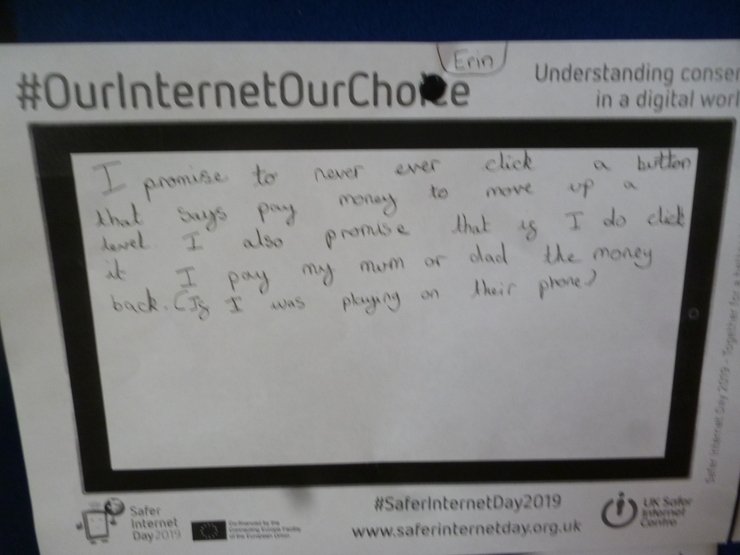 Erin
#OurInternetOurChoice
Understanding conser
in a digital worl
I promise to never ever click a button
that says pay money to move up a
level I also promise that if I do click
it I pay my mum or dad the money
back. (If I was playing on their phone)
Safer Internet Day 2019 - Together for a bett
Safer
Internet
Day 2019
Co-financed by the
Connecting Europe Facility
of the European Union
#SaferInternetDay2019
www.saferinternetday.org.uk
UK Safer
Internet
Centre